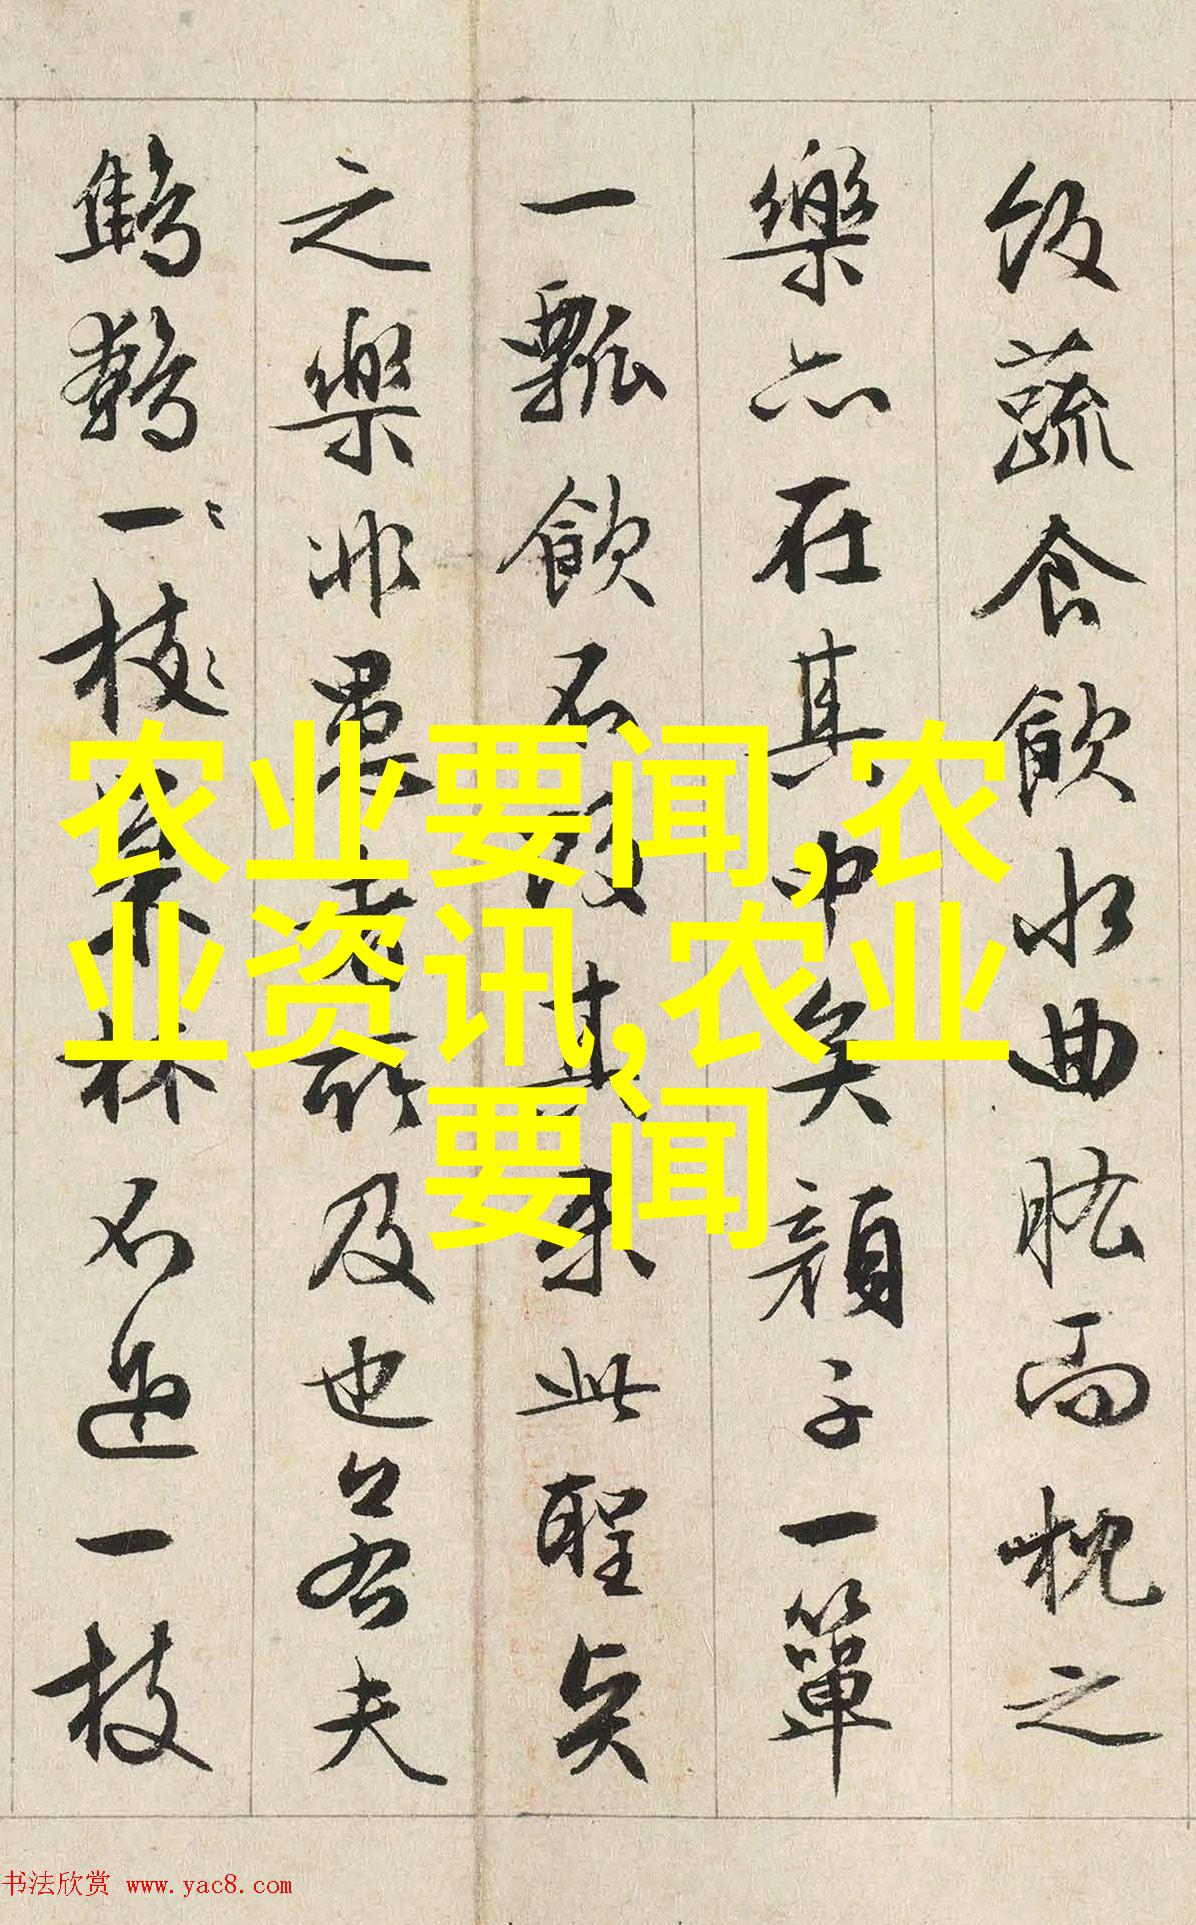 飯蔬食飲水曲肱而枕之
樂亦在其中矣顏子一簞
一瓢飲不改其樂此聖賢
之樂非愚者所及也若夫
鷦鷯一枝巢林不過一枝
农业要闻,农
业资讯,农业
要闻
书法欣赏 www.yac8.com